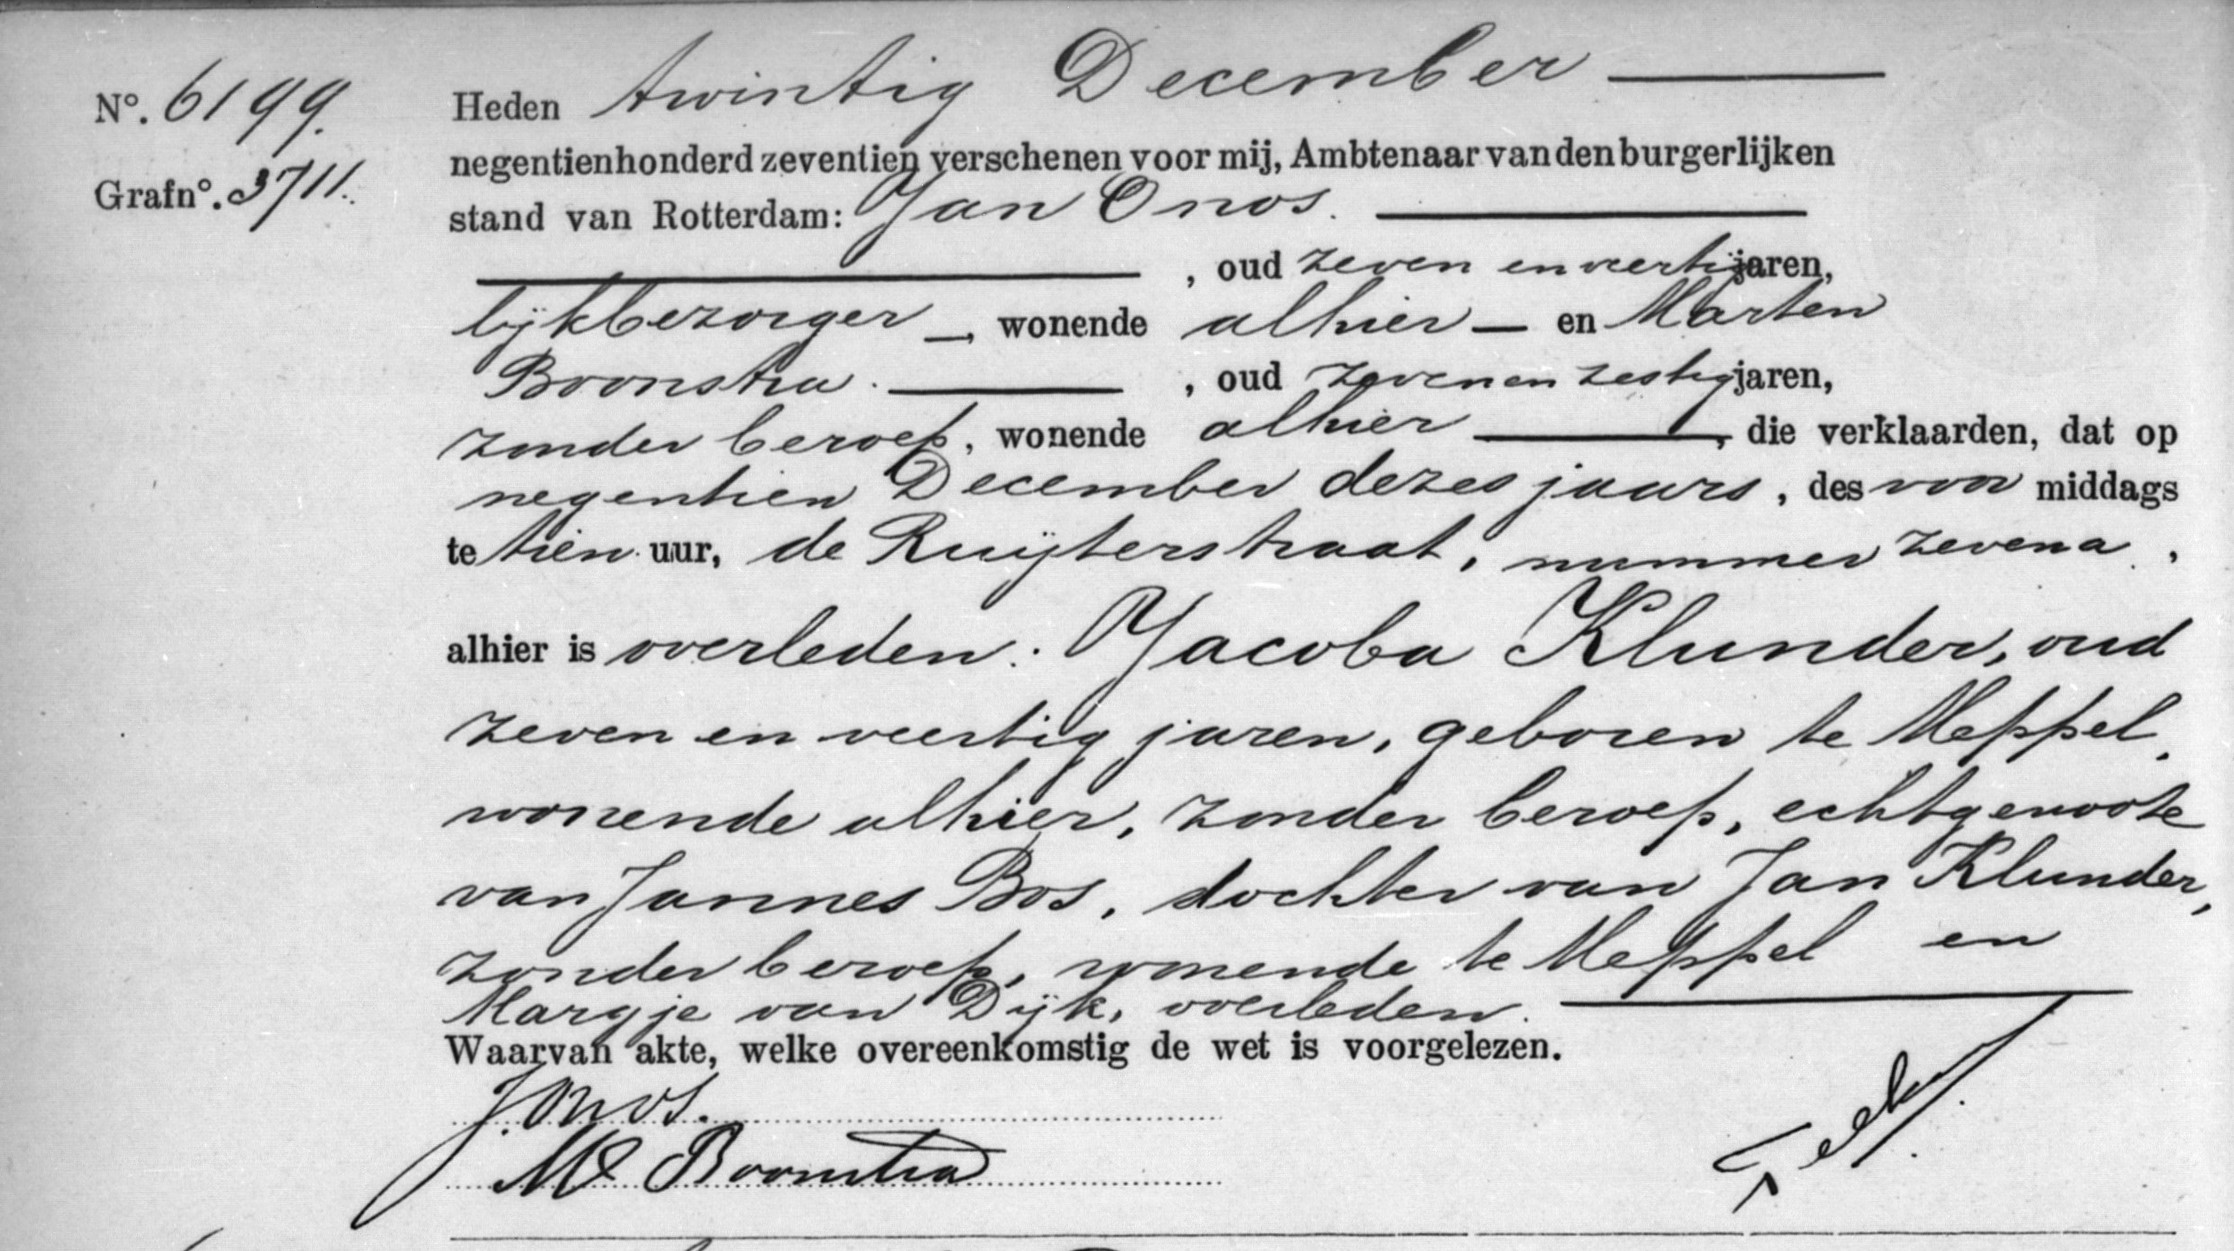 Nº. 6199.
Grafnº. 3711.
Heden twintig December
negentienhonderd zeventien verschenen voor mij, Ambtenaar van den burgerlijken
stand van Rotterdam: Jan Onos.
, oud zeven en veertig jaren,
lijkbezorger, wonende alhier en Marten
Boonstra. , oud zeven en zestig jaren,
zonder beroep, wonende alhier, die verklaarden, dat op
negentien December dezes jaars, des voor middags
te tien uur, de Ruijterstraat, nummer zeven a,
alhier is overleden: Jacoba Klunder, oud
zeven en veertig jaren, geboren te Meppel,
wonende alhier, zonder beroep, echtgenoote
van Jannes Bos, dochter van Jan Klunder,
zonder beroep, wonende te Meppel en
Margje van Dijk, overleden.
Waarvan akte, welke overeenkomstig de wet is voorgelezen.
J. Onos.
M Boonstra